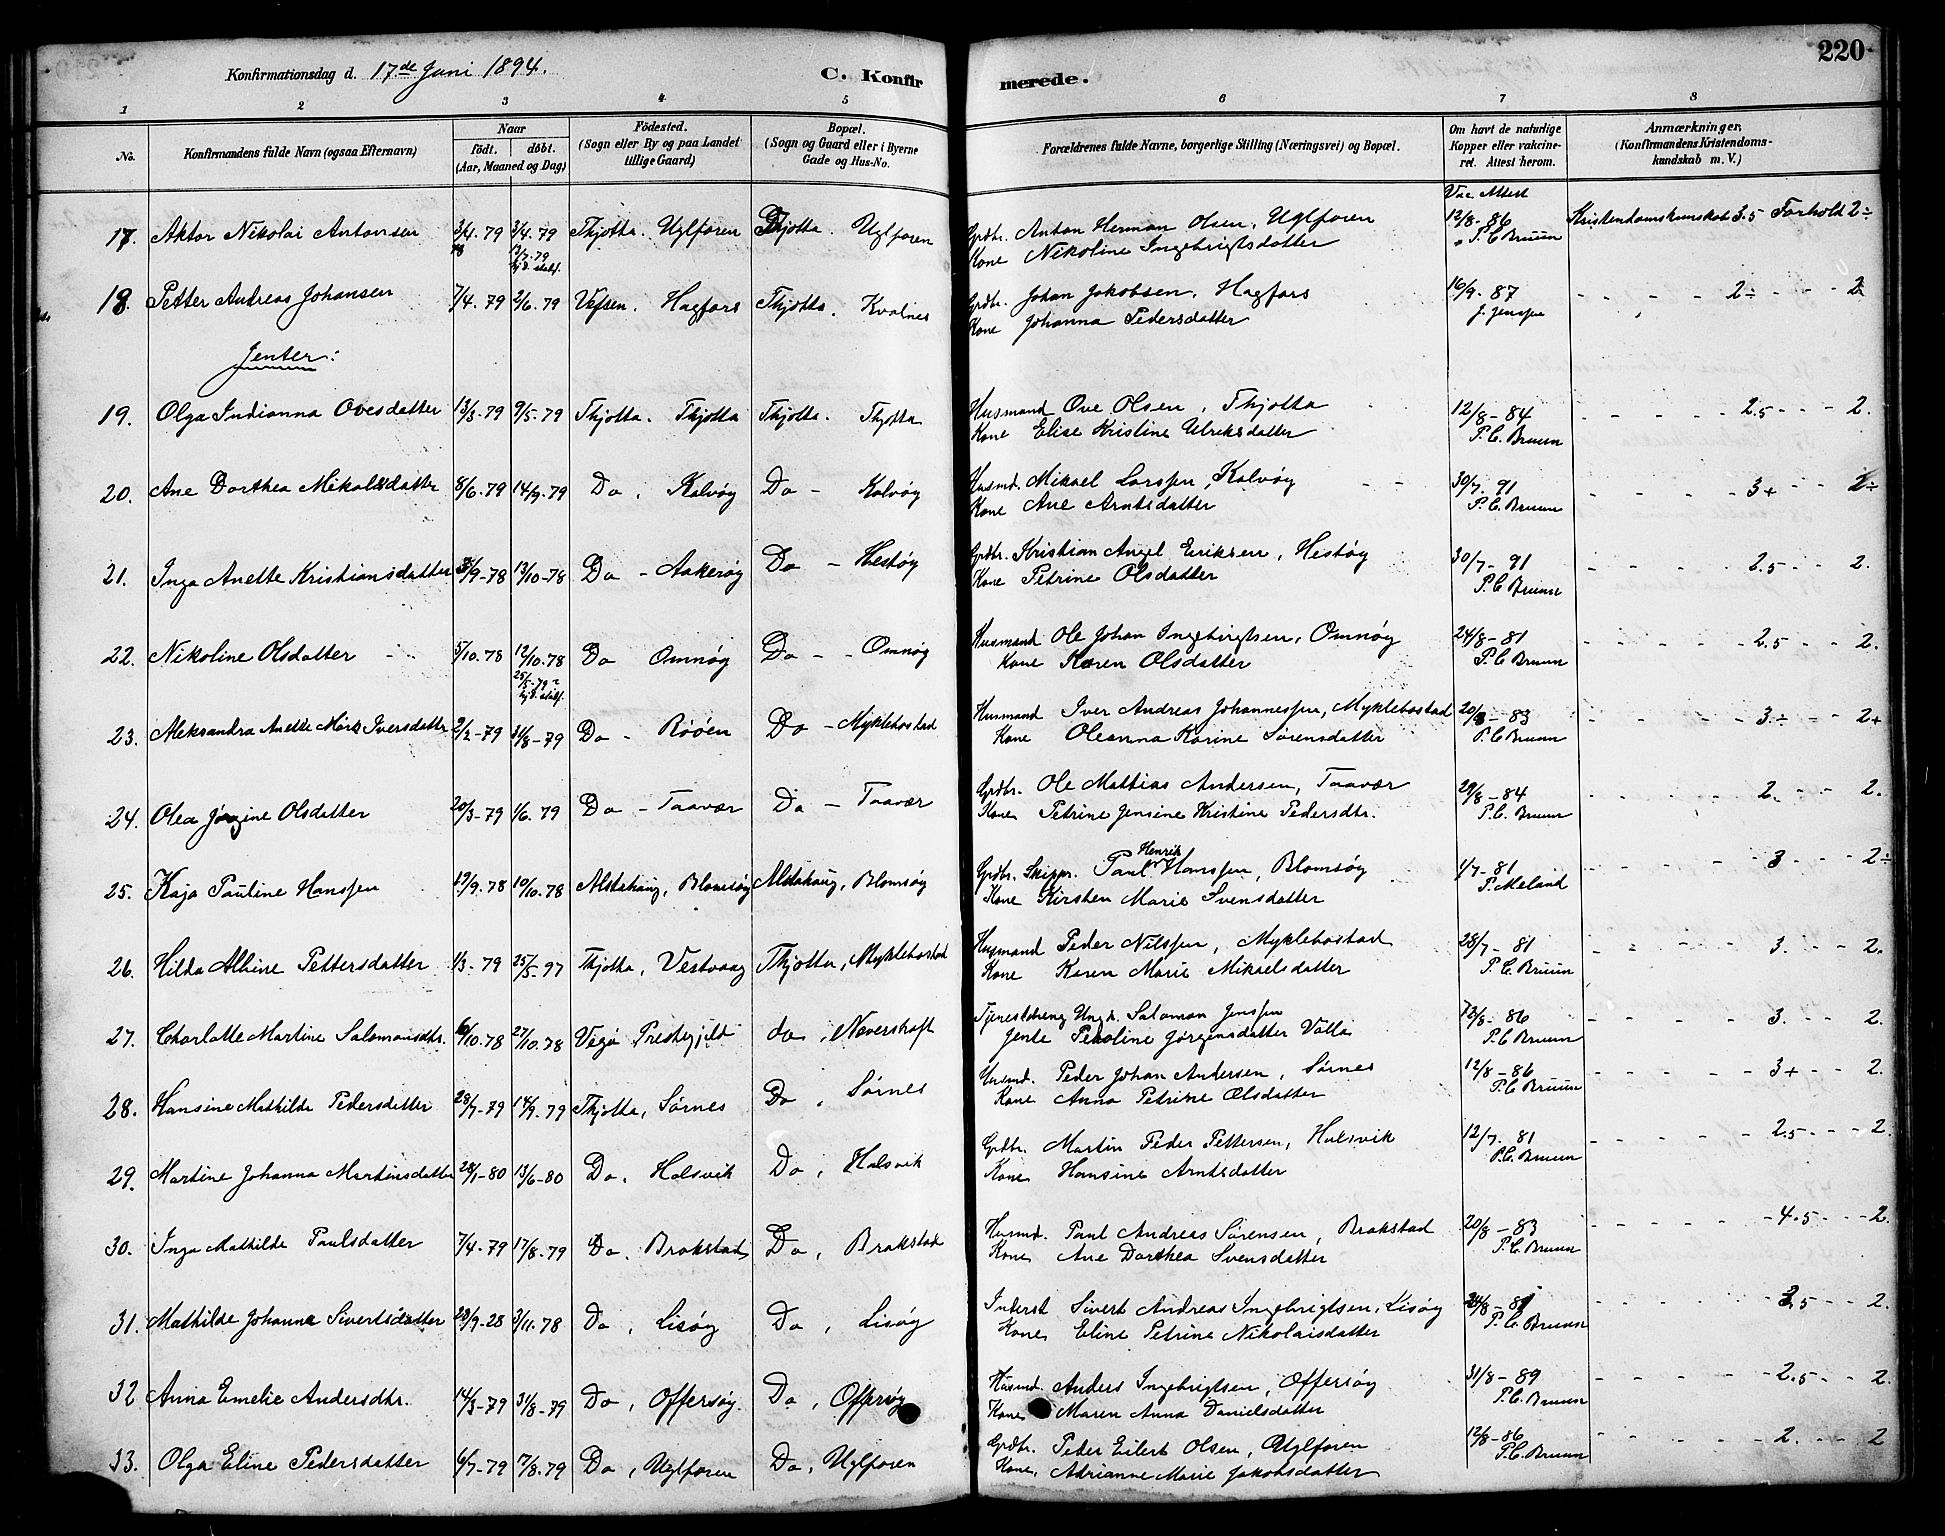 220
Konfirmationsdag d. 17de Juni 1894. C. Konfirmerede.
1 2 3 4 5 6 7 8
No. Konfirmandens fulde Navn (ogsaa Efternavn) Naar födt. döbt. (Aar, Maaned og Dag) Födested. (Sogn eller By og paa Landet tillige Gaard) Bopæl. (Sogn og Gaard eller i Byerne Gade og Hus-No. Forældrenes fulde Navne, borgerlige Stilling (Næringsvei) og Bopæl. Om havt de naturlige Kopper eller vakcineret. Attest herom. Anmærkninger. (Konfirmandens Kristendomskundskab m. V.)
Vac. Attest
17. Aktor Nikolai Antonsen 3/4. 79 3/4. 79 Thjotta. Uglforen Thjotta. Uglforen Grdbr. Anton Herman Olsen, Uglforen 12/8-86 Kristendomskunskab 3.5 Forhold 2÷
Kone Nikoline Ingebrigtsdatter P. C Bruun
18. Petter Andreas Johansen 7/4. 79 2/6. 79 Vefsen. Hagfors Thjotta. Kvalnes Grdbr. Johan Jakobsen, Hagfors 16/9-87 2÷ 2
Kone Johanna Pedersdatter J. Jenssen
Jenter:
19. Olga Indianna Ovesdatter 13/3-79 9/5-79 Thjotta. Thjotta Thjotta. Thjotta Husmand Ove Olsen, Thjotta 12/8-84 2.5 2.
Kone Elise Kristine Ulriksdatter P. C. Bruun
20. Ane Dorthea Mikalsdatter 8/6.79 14/9-79 Do, Kalvøy Do - Kalvøy Husmd. Mikael Larssen, Kalvøy 30/7. 91 3+ 2÷
Kone Ane Arntsdatter P. C. Bruun
21. Inga Anette Kristiansdatter 3/9-78 13/10-78 Do - Aakerøy Do - Hestøy Grdbr. Kristian Angel Eriksen, Hestøy 30/7-91 2.5 2.
Kone Petrine Olsdatter P. C Bruun
22. Nikoline Olsdatter 5/10.78 12/10.78 Do Omnøy Do - Omnøy Husmand Ole Johan Ingebrigtsen, Omnøy 24/8-81 2.5 2.
Kone Karen Olsdatter P. C. Bruun
23. Aleksandra Anette Marie Iversdatter 2/2-79 31/8-79 Do - Røøen Do - Myklebostad Husmand Iver Andreas Johannessen, Myklebostad 20/8-83 3÷ 2+
Kone Oleanna Karine Sørensdatter P. C Bruun
24. Olea Jørgine Olsdatter 20/3-79 1/6. 79 Do - Taavær Do - Taavær Grdbr. Ole Mathias Andersen, Taavær 29/8-84 2. 2.
Kone Petrine Jensine Kristine Pedersdtr. P. C. Bruun
25. Kaja Pauline Hanssen 19/9.78 19/10.78 Alstahaug, Blomsøy Alstahaug, Blomsøy Grdbr. Skippr. Paul Henrik Hanssen, Blomsøy 4/7-81 3 2÷
Kone Kirsten Marie Svensdatter P. Meland
26. Hilda Albine Pettersdatter 1/3. 79 25/5-97 Thjotta, Vestvaag Thjotta, Myklebostad Husmand Peder Nilssen, Myklebostad 28/7-81 3. 2.
Kone Karen Marie Mikaelsdatter P. C. Bruun
27. Charlotte Martine Salomonsdtr. 6/10.78 27/10.78 Vega Prestegjeld do, Neverskoft Tjenestdreng Ungk. Salomon Jenssen 12/8-86 3. 2.
Jente Petoline Jørgensdatter Valla P. C Bruun
28. Hansine Mathilde Pedersdatter 28/7-79 14/9.79 Thjotta, Sørnes Do, Sørnes Husmd. Peder Johan Andersen, Sørnes 12/8-86 3+ 2.
Kone Anna Petrine Olsdatter P. C Bruun
29. Martine Johanna Martinsdatter 28/1-80 13/6-80 Do. Halsvik Do, Halsvik Grdbr. Martin Peder Pettersen, Halsvik 12/7. 81 2.5 2.
Kone Hansine Arntsdatter P. C. Bruun
30. Inga Mathilde Paulsdatter 7/4-79 17/8.79 Do. Brakstad Do, Brakstad Husmd. Paul Andreas Sørensen, Brakstad 20/8-83 4.5 2.
Kone Ane Dorthea Svensdatter P. C. Bruun
31. Mathilde Johanne Sivertsdatter 28/9-28 3/11.78 Do, Lisøy Do, Lisøy Inderst Sivert Andreas Ingebrigtsen, Lisøy 24/8-81 3,5 2.
Kone Eline Petrine Nikolaisdatter P. C. Bruun
32 Anna Emelie Andersdtr. 14/3-79 31/8-79 Do, Offersøy. Do, Offersøy Husmd. Anders Ingebrigtsen, Offersøy 31/8-89 2.5 2.
Kone Maren Anna Danielsdatter P. C. Bruun
33. Olga Eline Pedersdatter 6/7-79 17/8.79 Do, Uglforen Do, Uglforen Grdbr. Peder Eilert Olsen, Uglforen 12/8-86 2. 2
Kone, Adrianne Marie Jakobsdatter P. C. Bruun